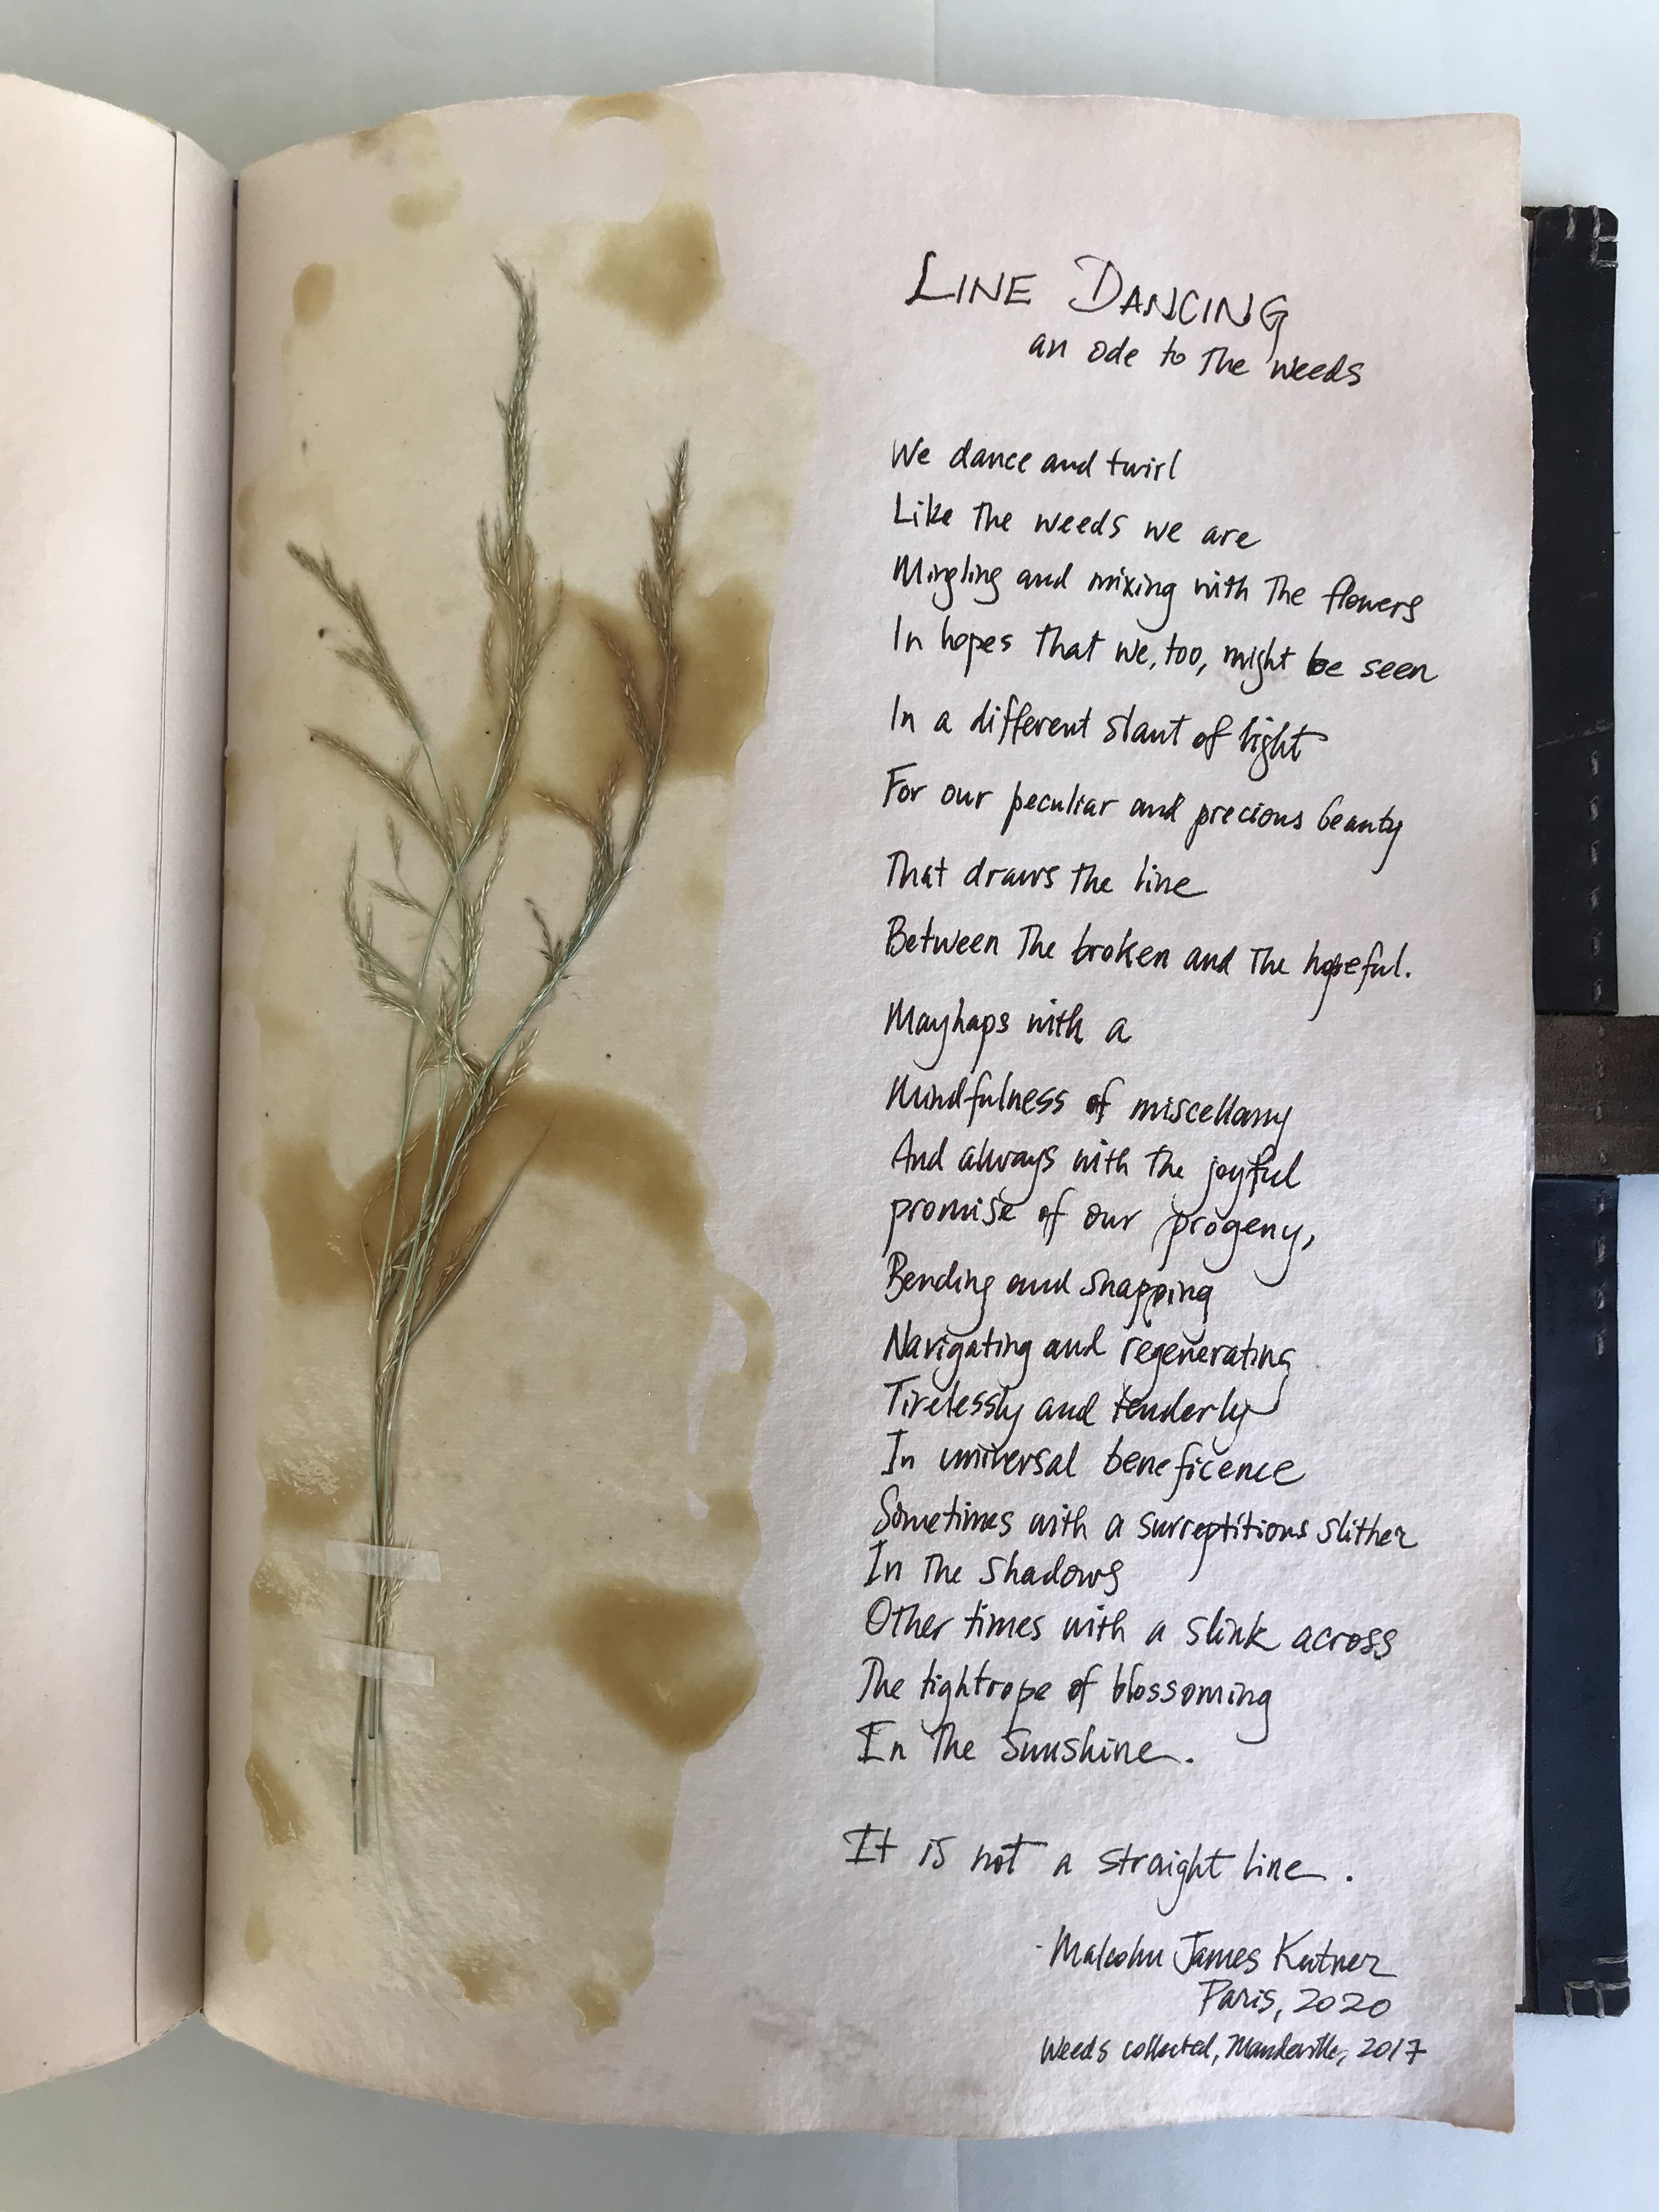 LINE DANCING
an ode to The weeds
We dance and twirl
Like The weeds we are
Mingling and mixing with The flowers
In hopes That we, too, might be seen
In a different slant of light
For our peculiar and precious beauty
That draws The line
Between The broken and The hopeful.
Mayhaps with a
Mindfulness of miscellany
And always with The joyful
promise of our progeny,
Bending and snapping
Navigating and regenerating
Tirelessly and tenderly
In universal beneficence
Sometimes with a surreptitious slither
In The shadows
Other times with a slink across
The tightrope of blossoming
In The Sunshine.
It is not a straight line.
- Malcolm James Kutner
Paris, 2020
Weeds collected, Mandeville, 2017